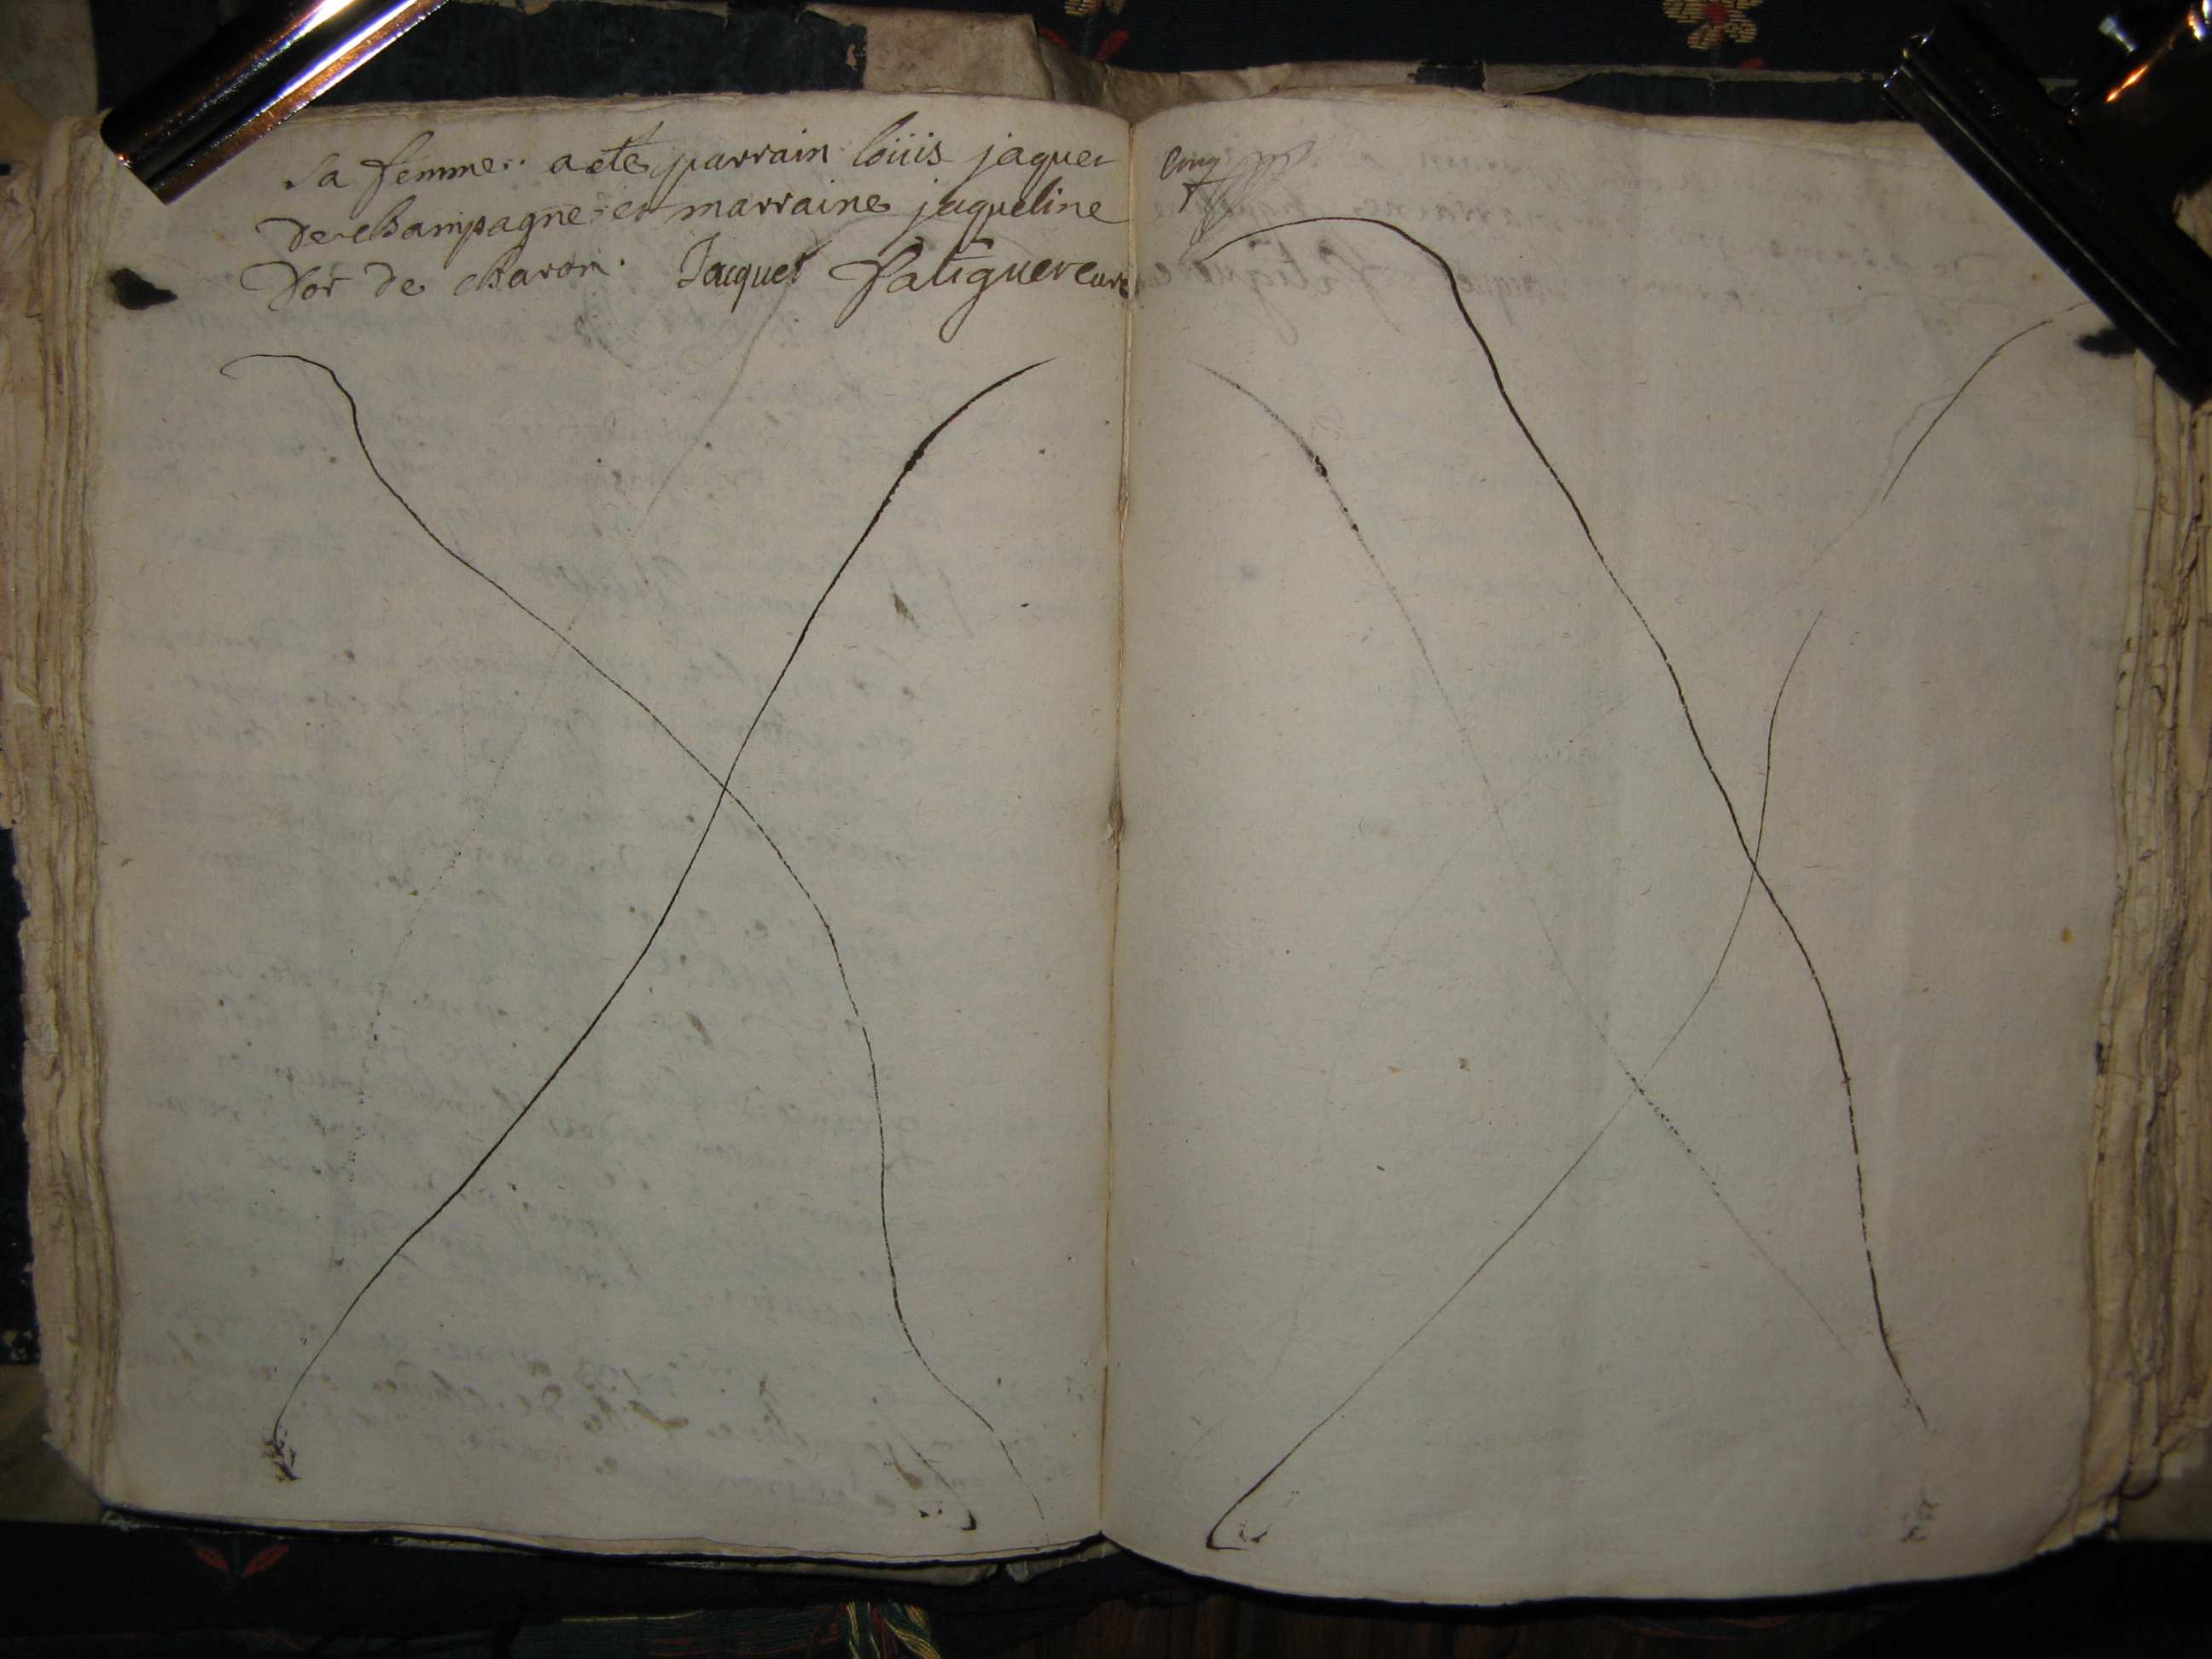 sa femme. a eté parrain loüis jaques
De champagne et marraine jaqueline
Dor de charon. Jacques fatiguer curé
Cinq